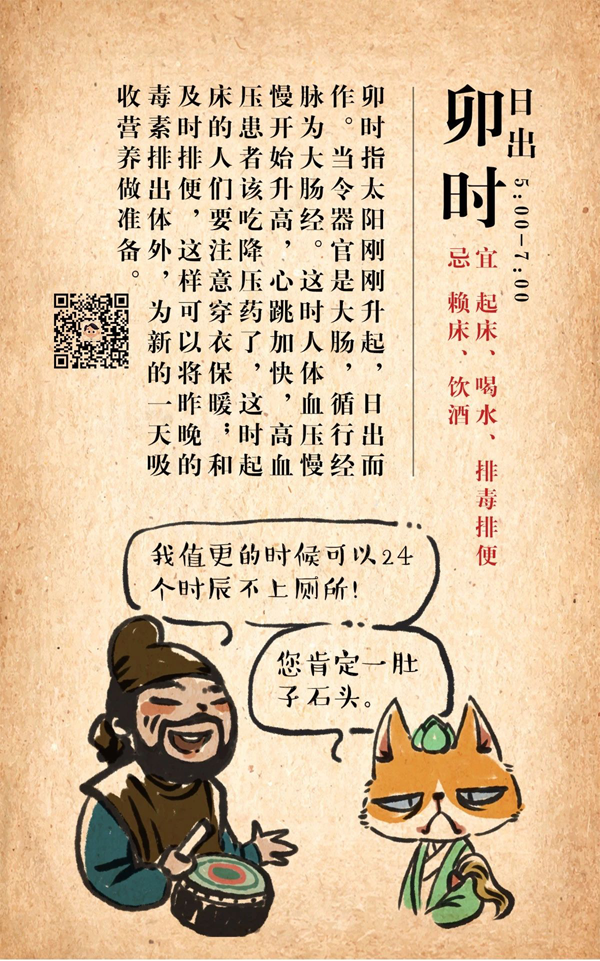 日出 5:00-7:00
卯时
宜 起床、喝水、排毒排便
忌 赖床、饮酒
卯时指太阳刚刚升起，日出而
作。当令器官是大肠，循行经
脉为大肠经。这时人体血压慢
慢开始升高，心跳加快，高血
压患者该吃降压药了，这时起
床的人们要注意穿衣保暖；和
及时排便，这样可以将昨晚的
毒素排出体外，为新的一天吸
收营养做准备。
我值更的时候可以24
个时辰不上厕所！
您肯定一肚
子石头。